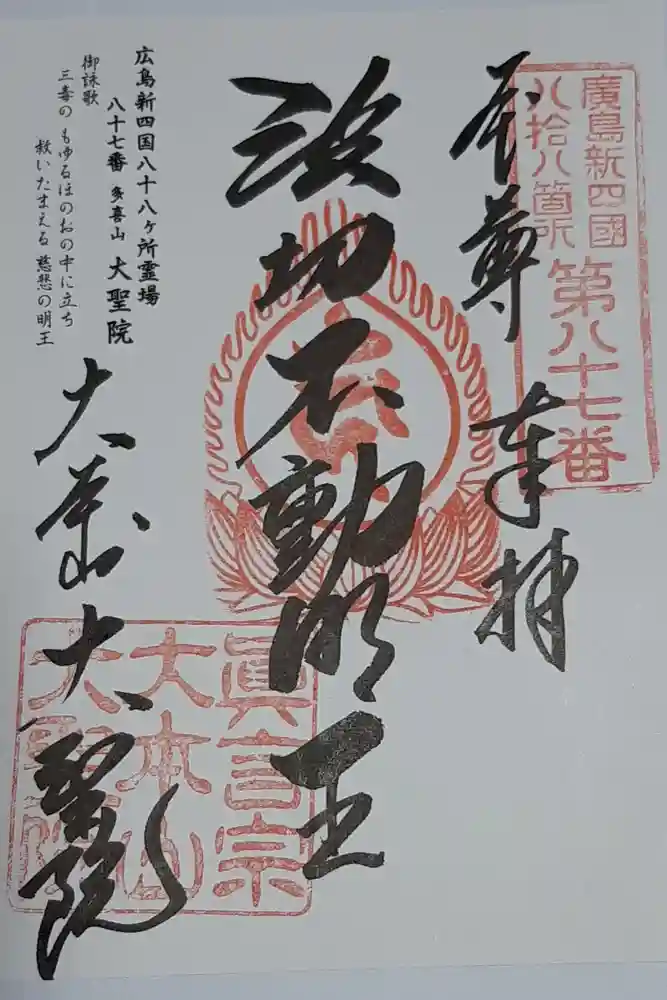 廣島新四國
八拾八箇所
第八十七番
本尊 奉拝
波切不動明王
広島新四国八十八ヶ所霊場
八十七番 多喜山 大聖院
御詠歌
三毒の もゆるほのおの中に立ち
救いたまえる 慈悲の明王
大本山 大聖院
眞言宗
大本山
大聖院